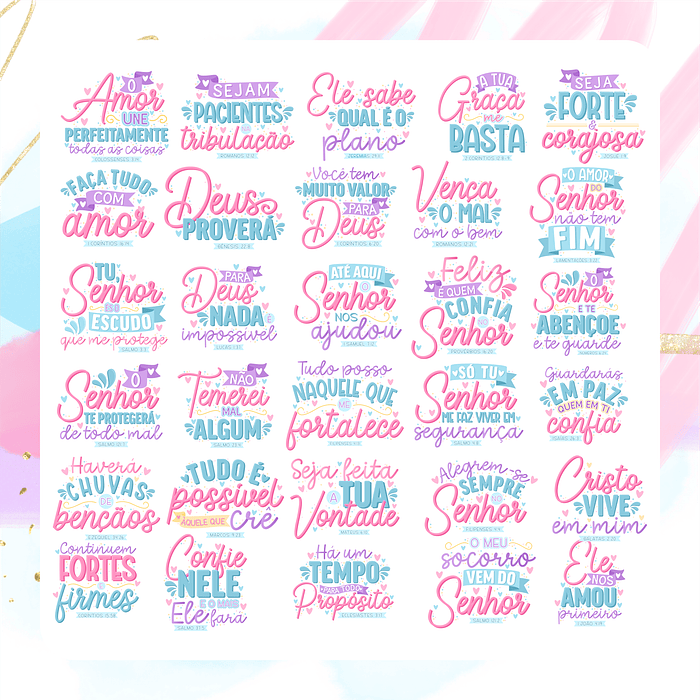 O
Amor
UNE
PERFEITAMENTE
todas as coisas
COLOSSENSES 3:14
SEJAM
PACIENTES
NA
tribulação
ROMANOS 12:12
Ele sabe
QUAL É O
plano
JEREMIAS 29:11
A TUA
Graça
me
BASTA
2 CORÍNTIOS 12:8-9
SEJA
FORTE
&
corajosa
JOSUÉ 1:9
FAÇA TUDO
COM
amor
1 CORÍNTIOS 16:14
Deus
PROVERÁ
GÊNESIS 22:8
Você tem
MUITO VALOR
PARA
Deus
1 CORÍNTIOS 6:20
Vença
O MAL
com o bem
ROMANOS 12:21
O AMOR
DO
Senhor
não tem
FIM
LAMENTAÇÕES 3:22
TU,
Senhor
ÉS O
ESCUDO
que me protege
SALMO 3:3
PARA
Deus
NADA É
impossível
LUCAS 1:37
ATÉ AQUI
O
Senhor
NOS
ajudou
1 SAMUEL 7:12
Feliz
É QUEM
CONFIA
NO
Senhor
PROVÉRBIOS 16:20
O
Senhor
E TE
ABENÇOE
e te guarde
NÚMEROS 6:24
O
Senhor
TE PROTEGERÁ
de todo mal
SALMO 121:7
NÃO
Temerei
MAL
ALGUM
SALMO 23:4
Tudo posso
NAQUELE QUE
ME
fortalece
FILIPENSES 4:13
SÓ TU
Senhor
ME FAZ VIVER EM
segurança
SALMO 4:8
Guardarás
EM PAZ
QUEM EM TI
confia
ISAÍAS 26:3
Haverá
CHUVAS
DE
bençãos
EZEQUIEL 34:26
TUDO É
possível
ÀQUELE QUE Crê
MARCOS 9:23
Seja feita
A TUA
Vontade
MATEUS 6:10
Alegrem-se
SEMPRE
NO
Senhor
FILIPENSES 4:4
Cristo
VIVE
em mim
GÁLATAS 2:20
Continuem
FORTES
E
firmes
1 CORÍNTIOS 15:58
Confie
NELE
E O MAIS
Ele fará
SALMO 37:5
Há um
TEMPO
PARA TODO
Propósito
ECLESIASTES 3:1
O MEU
socorro
VEM DO
Senhor
SALMO 121:2
Ele
NOS
AMOU
primeiro
1 JOÃO 4:19